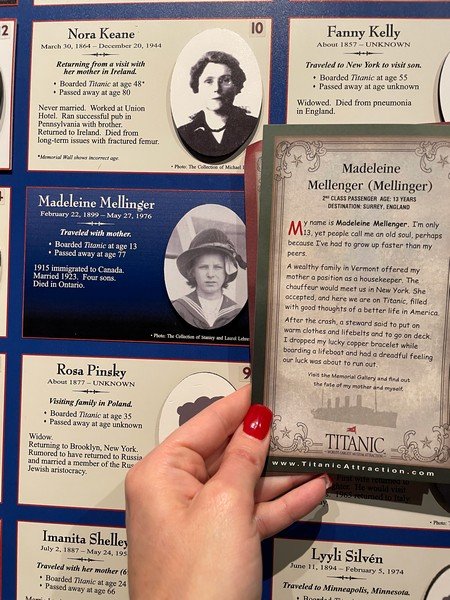 2
10
Nora Keane
March 30, 1864 – December 20, 1944
Returning from a visit with
her mother in Ireland.
• Boarded Titanic at age 48*
• Passed away at age 80
Never married. Worked at Union
Hotel. Ran successful pub in
Pennsylvania with brother.
Returned to Ireland. Died from
long-term issues with fractured femur.
*Memorial Wall shows incorrect age.
• Photo: The Collection of Michael
Fanny Kelly
About 1857 – UNKNOWN
Traveled to New York to visit son.
• Boarded Titanic at age 55
• Passed away at age unknown
Widowed. Died from pneumonia
in England.
Madeleine Mellinger
February 22, 1899 – May 27, 1976
Traveled with mother.
• Boarded Titanic at age 13
• Passed away at age 77
1915 immigrated to Canada.
Married 1923. Four sons.
Died in Ontario.
• Photo: The Collection of Stanley and Laurel
Rosa Pinsky
About 1877 – UNKNOWN
Visiting family in Poland.
• Boarded Titanic at age 35
• Passed away at age unknown
Widow.
Returning to Brooklyn, New York.
Rumored to have returned to Russia
and married a member of the
Jewish aristocracy.
9
Imanita Shelley
July 2, 1887 – May 24, 195
Traveled with her mother
• Boarded Titanic at age 24
• Passed away at age 66
Madeleine
Mellenger (Mellinger)
2ND CLASS PASSENGER AGE: 13 YEARS
DESTINATION: SURREY, ENGLAND
My name is Madeleine Mellenger. I'm only
13, yet people call me an old soul, perhaps
because I've had to grow up faster than my
peers.
A wealthy family in Vermont offered my
mother a position as a housekeeper. The
chauffeur would meet us in New York. She
accepted, and here we are on Titanic, filled
with good thoughts of a better life in America.
After the crash, a steward said to put on
warm clothes and lifebelts and to go on deck.
I dropped my lucky copper bracelet while
boarding a lifeboat and had a dreadful feeling
our luck was about to run out.
Visit the Memorial Gallery and find out
the fate of my mother and myself.
TITANIC
WORLD'S LARGEST MUSEUM ATTRACTION
www.TitanicAttraction.com
Lyyli Silvén
June 11, 1894 – February 5, 1974
Traveled to Minneapolis, Minnesota.
• Boarded Titanic at age